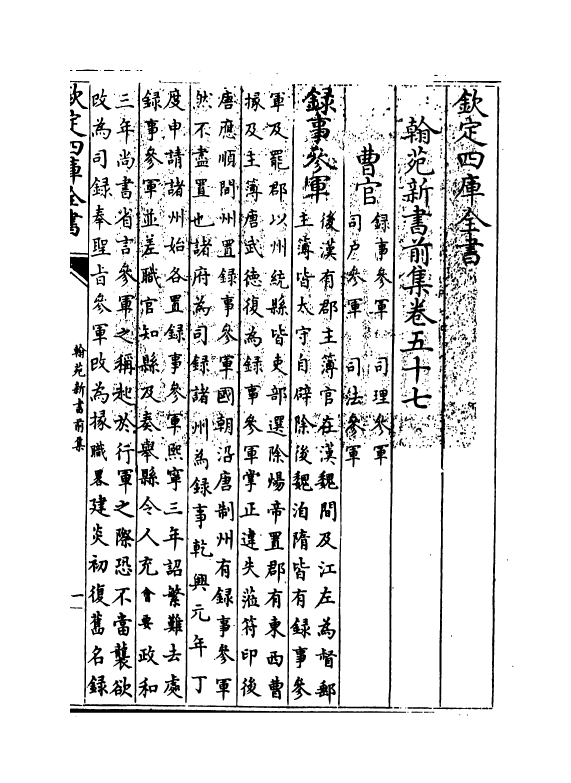 欽定四庫全書
翰苑新書前集卷五十七
曹官
録事參軍　司理參軍
司户參軍　司法參軍
録事參軍
後漢有郡主簿官在漢魏間及江左為督郵
主簿皆太守自辟除後魏洎隋皆有録事參
軍及罷郡以州統縣皆吏部選除煬帝置郡有東西曹
掾及主簿唐武徳復為録事參軍掌正違失涖符印後
唐應順間州置録事參軍國朝沿唐制州有録事參軍
然不盡置也諸府為司録諸州為録事乾興元年丁
度申請諸州始各置録事參軍熙寧三年詔繁難去處
録事參軍並差職官知縣及奏舉縣令人充會要政和
三年尚書省言參軍之稱起於行軍之際恐不當襲欲
改為司録奉聖旨參軍改為掾職畧建炎初復舊名録
欽定四庫全書
翰苑新書前集
一